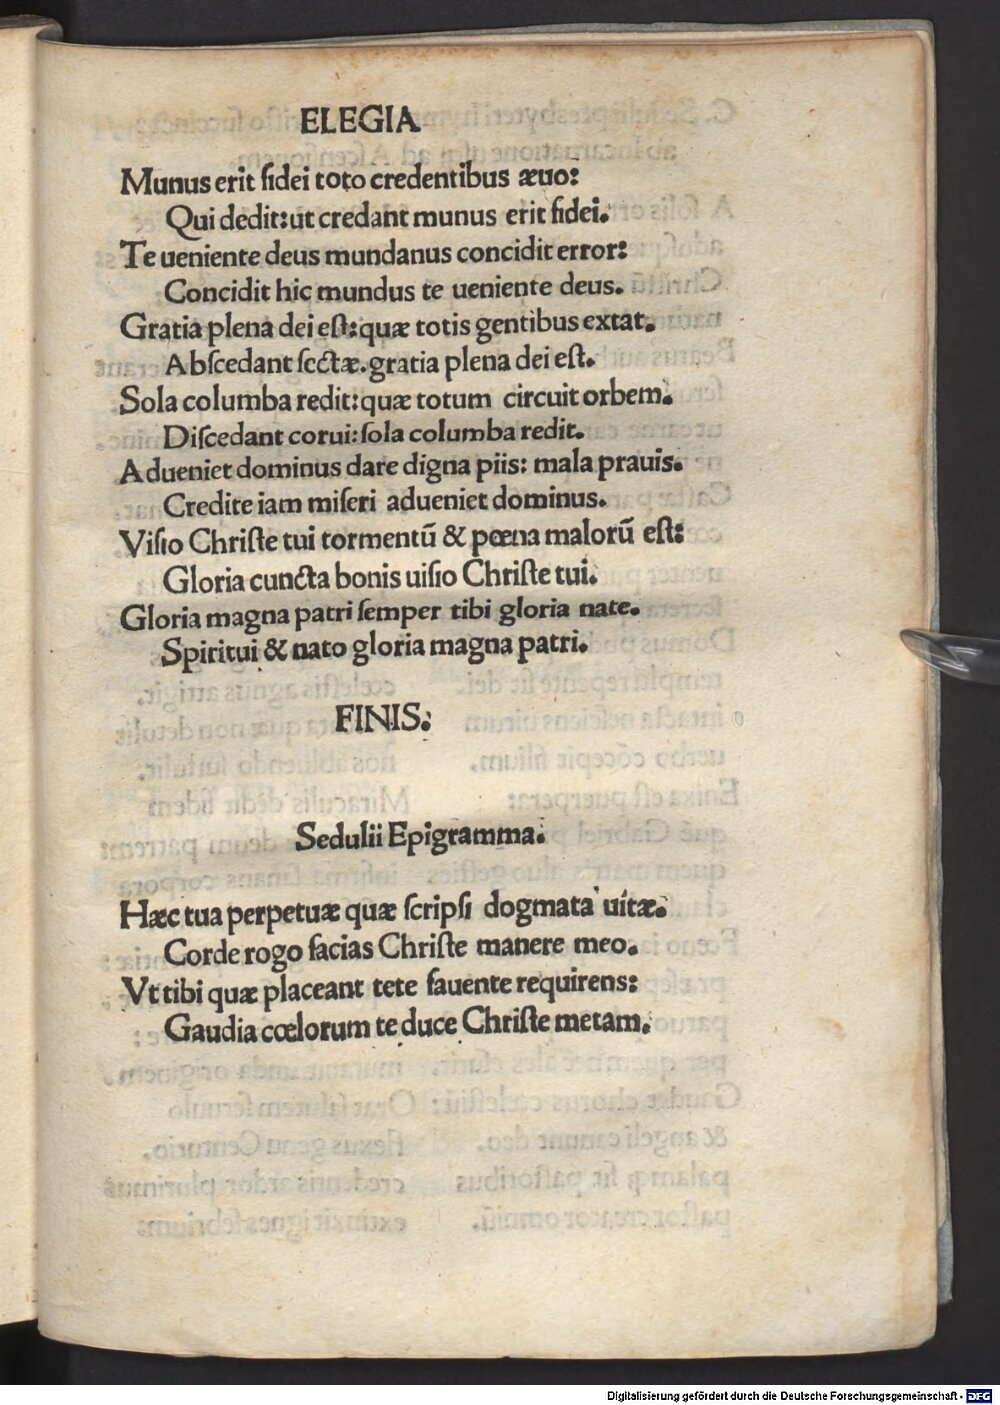 ELEGIA
Munus erit fidei toto credentibus æuo:
Qui dedit:ut credant munus erit fidei.
Te ueniente deus mundanus concidit error:
Concidit hic mundus te ueniente deus.
Gratia plena dei eſt:quæ totis gentibus extat.
Abſcedant ſectæ.gratia plena dei eſt.
Sola columba redit:quæ totum circuit orbem.
Diſcedant corui:ſola columba redit.
Adueniet dominus dare digna piis: mala prauis.
Credite iam miſeri adueniet dominus.
Viſio Chriſte tui tormentū & pœna malorū eſt:
Gloria cuncta bonis uiſio Chriſte tui.
Gloria magna patri ſemper tibi gloria nate.
Spiritui & nato gloria magna patri.
FINIS.
Sedulii Epigramma.
Hæc tua perpetuæ quæ ſcripſi dogmata uitæ.
Corde rogo facias Chriſte manere meo.
Vt tibi quæ placeant tete fauente requirens:
Gaudia cœlorum te duce Chriſte metam.
Digitalisierung gefördert durch die Deutsche Forschungsgemeinschaft - DFG